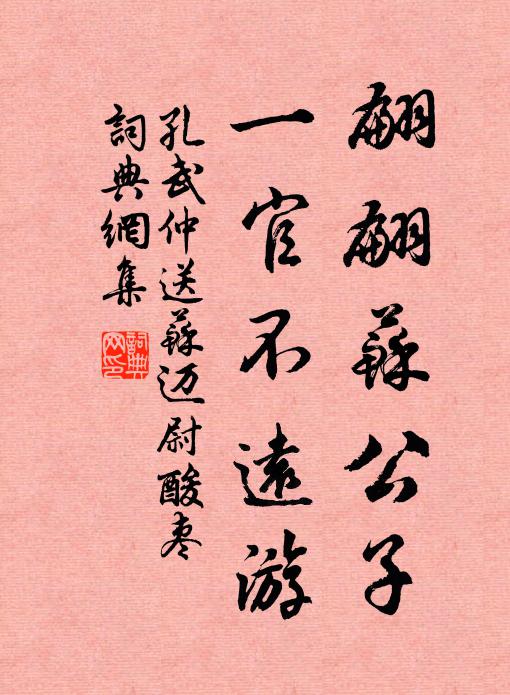 翩翩蘇公子
一官不遠游
孔武仲送蘇迈尉酸枣
詞典網集
詞典網印